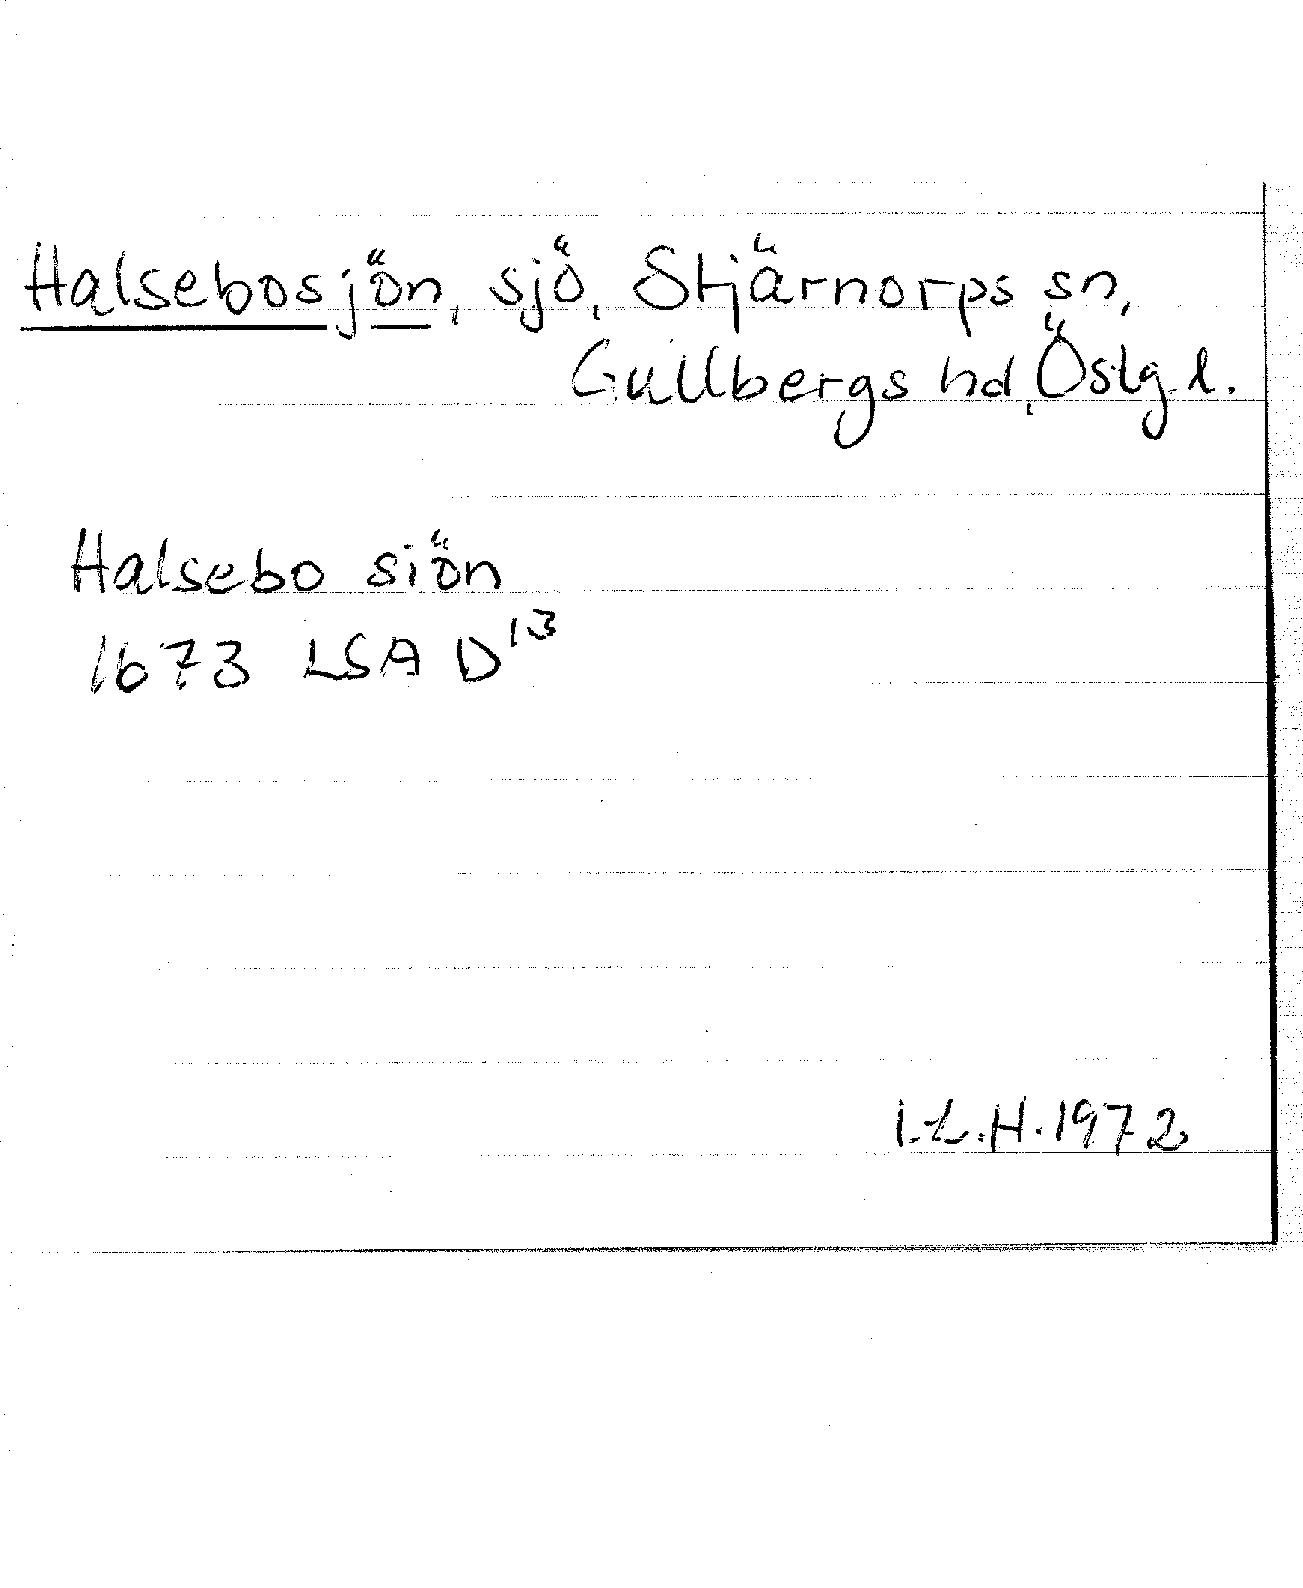 Halsebosjön, sjö, Stjärnorps sn,
Gullbergs hd, Östg l.
Halsebo siön
1673 LSA D¹³
I.L.H. 1972